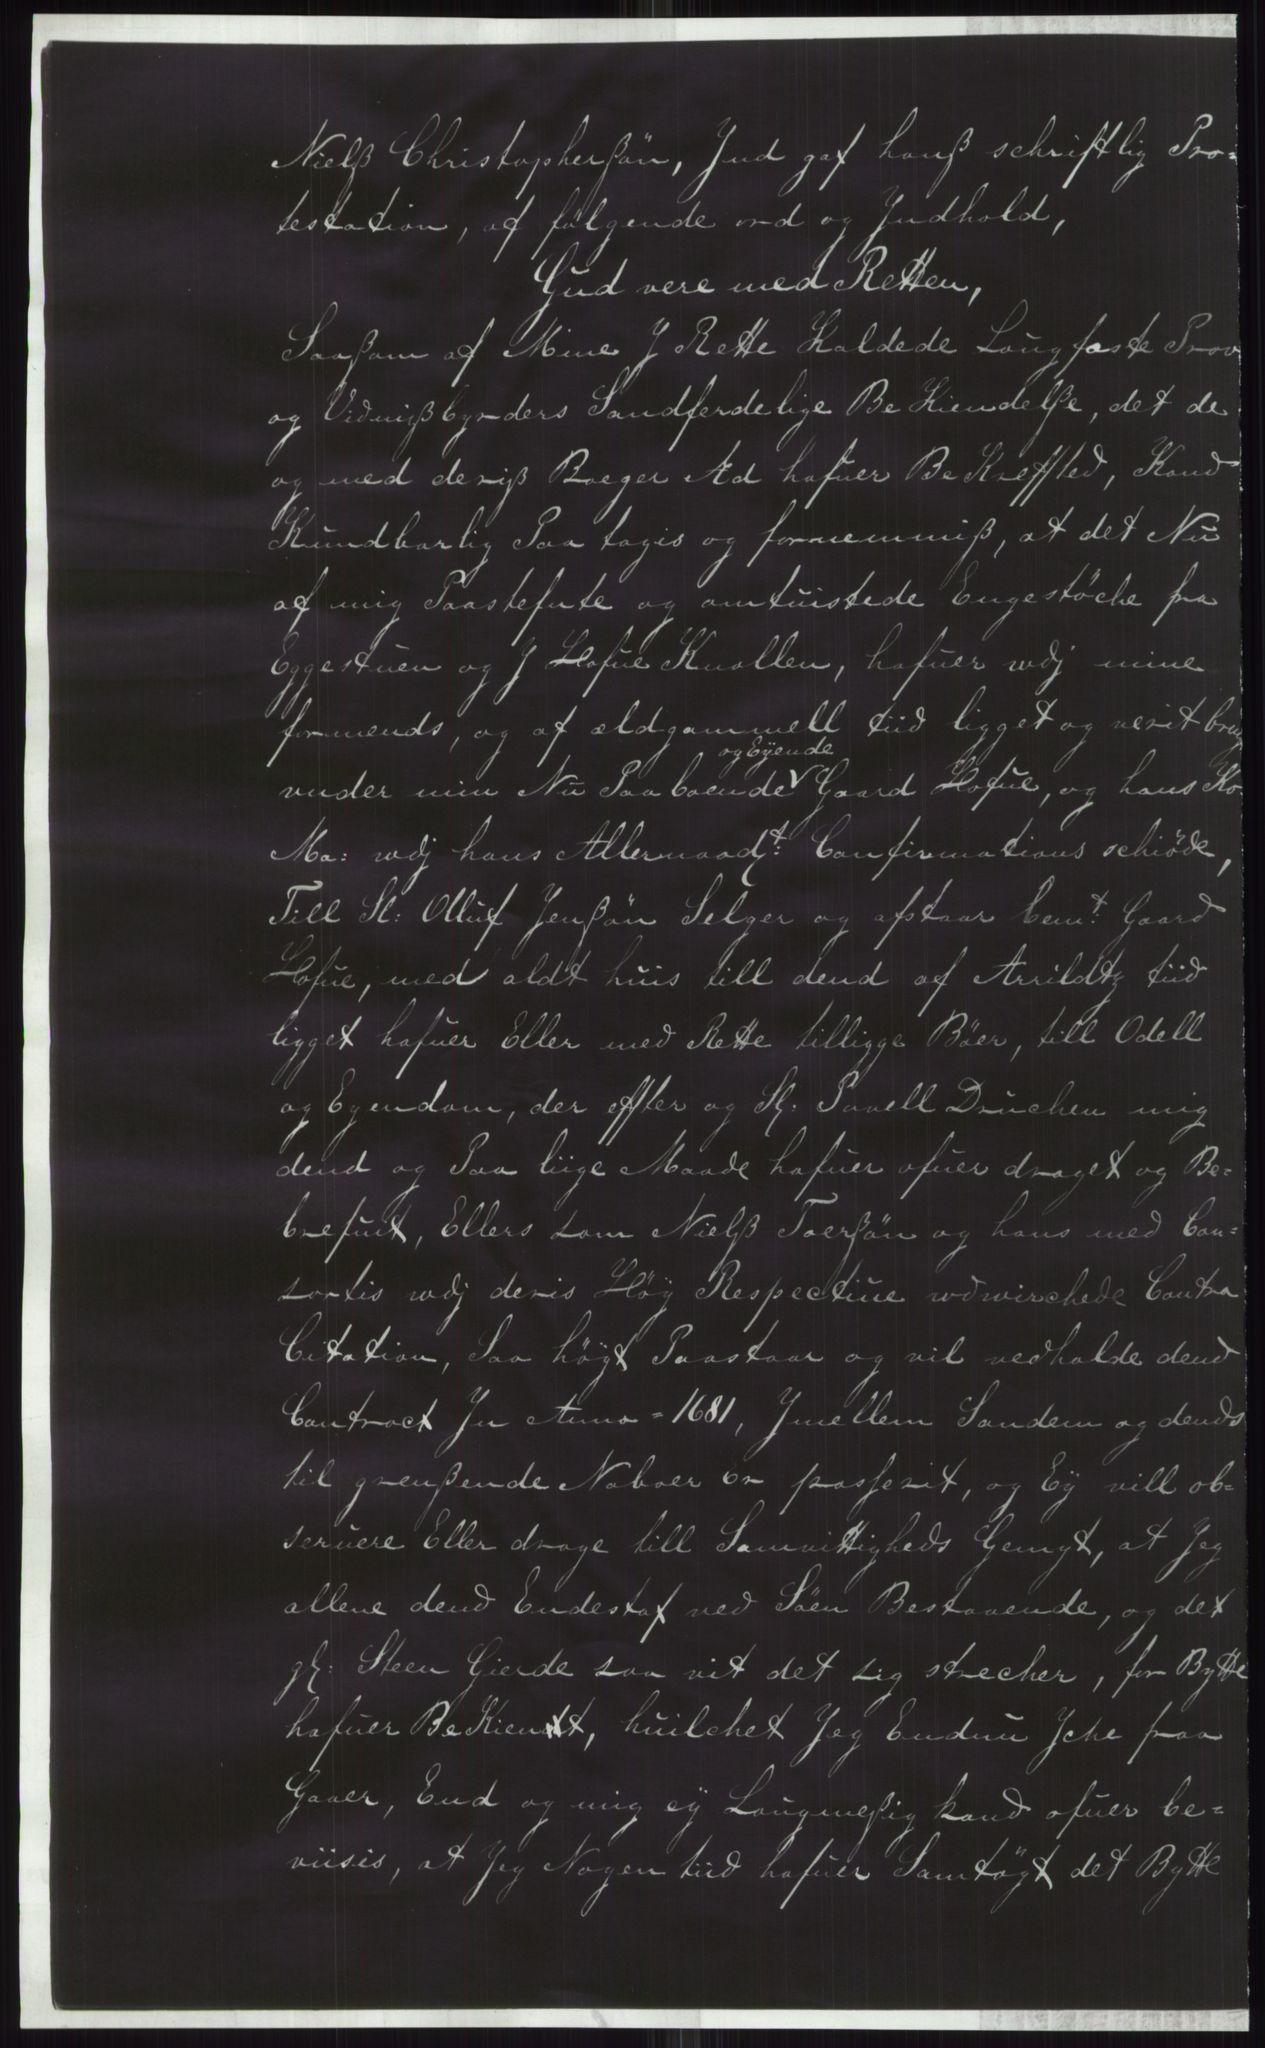 Nielß Christopherßøn, Ind gaf hanß schriftlig Pro-
testation, af følgende ord og Indhold,
Gud vere med Retten,
Saaßom af Mine J Rette Kaldede Laugfaste Prov
og Vidnißbyrders Sandferdelige Be Kiendelße, det de
og med deriß Boeger Æd hafuer BeKreffted, Kand
Kundbarlig Paa tagis og fornemmiß, at det Nu
af mig Paastefnte og omtuistede Engestøche fra
Eggestuen og J Hofue Knollen, hafuer wdj mine
formends, og af ældgammell tiid ligget og verit brug
vnder min Nu Paa boende og Eÿende Gaard Hofue, og hans Ko
Ma: wdj hans Allernaadst: Confirmations schiøde,
Till Sl: Olluf Jenßøn Selger og afstaar bemt: Gaard
Hofue, med aldt huis till dend af Arrildtz tiid
ligget hafuer Eller med Rette tilligge Bøer, till Odell
og Eyendom, der effter og Sl: Povell Druchen mig
dend og Paa liige Maade hafuer ofuer draget og Be-
brefuit, Ellers som Nielß Toerßøn og hans med Con-
sortis wdj deris Høÿ Respectiue wdwirchede Contra
Citation, Saa høÿt Paastaar og vil vedholde dend
Contract In Anno = 1681, Jmellem Sandem og dends
til grenßende Naboer er passerit, og Eÿ vill ob-
seruere Eller drage till Samvittigheds Gemyt, at Jeg
allene dend Endestaf ved Søen Bestaaende, og det
gl: Steen Gierde saa vit det sig strecher, for Bytte
hafuer BeKiendt, huilchet Jeg Endnu Jche fraa
Gaaer, End og mig eÿ Laugmeßig kand ofuer be-
viisis, at Jeg Nogen tiid hafuer Samtøgt det Bytte